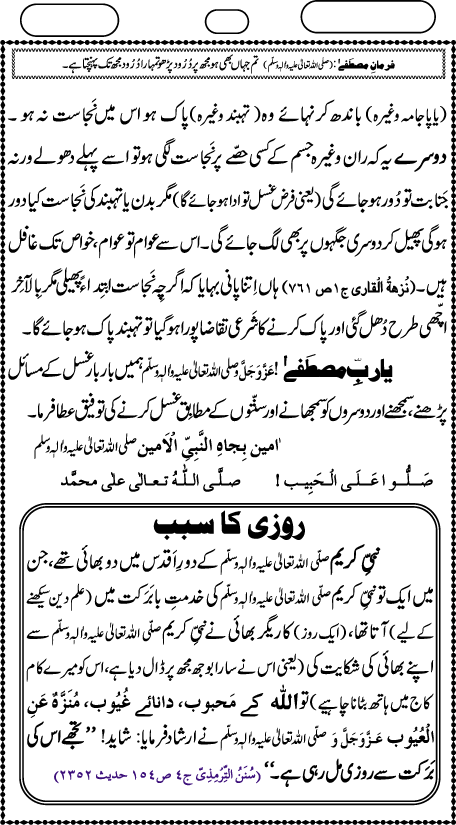 فرمانِ مصطَفٰے: (صلی اللہ تعالیٰ علیہ والہٖ وسلّم) تم جہاں بھی ہو مجھ پر دُرُود پڑھو تمہارا دُرُود مجھ تک پہنچتا ہے۔
(پاپاجامہ وغیرہ) باندھ کر نہائے وہ (تہبند وغیرہ) پاک ہو اس میں نَجاست نہ ہو۔
دوسرے یہ کہ ران وغیرہ جسم کے کسی حصّے پر نَجاست لگی ہو تو اسے پہلے دھولے ورنہ
جَنابت تو دُور ہو جائے گی (یعنی فرض غسل تو ادا ہو جائے گا) مگر بدن یا تہبند کی نَجاست کیا دور
ہوگی پھیل کر دوسری جگہوں پر بھی لگ جائے گی۔ اس سے عوام تو عوام، خواص تک غافل
ہیں۔ (نُزھۃُ القاری ج۱ ص ۷۶۱) ہاں اِتنا پانی بہایا کہ اگرچِہ نَجاست ابتِداءً پھیلی مگر بِالآخِر
اچھی طرح دُھل گئی اور پاک کرنے کا شَرعی تقاضا پورا ہوگیا تو تہبند پاک ہو جائے گا۔
یا ربِّ مصطَفٰے! عَزَّوَجَلَّ وصلی اللہ تعالیٰ علیہ والہٖ وسلّم ہمیں بار بار غسل کے مسائل
پڑھنے، سمجھنے اور دوسروں کو سمجھانے اور سنّتوں کے مطابِق غسل کرنے کی توفیق عطا فرما۔
اٰمین بِجاہِ النَّبِیِّ الْاَمین صلی اللہ تعالیٰ علیہ والہٖ وسلم
صَلُّوا عَلَی الْحَبِیب ! صلَّی اللّٰہُ تعالیٰ علیٰ محمَّد
روزی کا سبب
نبیِّ کریم صلی اللہ تعالیٰ علیہ والہٖ وسلّم کے دورِ اَقدس میں دو بھائی تھے، جن
میں ایک تو نبیِّ کریم صلی اللہ تعالیٰ علیہ والہٖ وسلّم کی خدمتِ بابَرَکت میں (علمِ دین سیکھنے
کے لیے) آتا تھا، (ایک روز) کاریگر بھائی نے نبیِّ کریم صلی اللہ تعالیٰ علیہ والہٖ وسلّم سے
اپنے بھائی کی شکایت کی (یعنی اس نے سارا بوجھ مجھ پر ڈال دیا ہے، اس کو میرے کام
کاج میں ہاتھ بٹانا چاہیے) تو اللہ کے مَحبوب، دانائے غُیُوب، مُنَزَّہٌ عَنِ
الْعُیُوب عَزَّوَجَلَّ وَ صلی اللہ تعالیٰ علیہ والہٖ وسلّم نے ارشاد فرمایا: شاید! ’’تجھے اس کی
بَرَکت سے روزی مل رہی ہے۔‘‘ (سُنَنُ التِّرْمِذِیّ ج۴ ص۱۵۴ حدیث ۲۳۵۲)